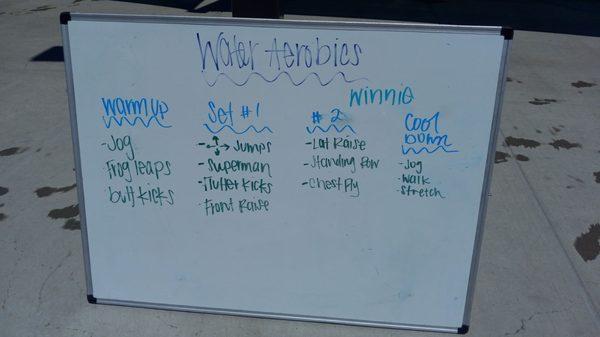 Water Aerobics
Winnie
Warm up
- Jog
Frog leaps
butt kicks
Set #1
- Jumps
- Superman
- Flutter Kicks
- Front Raise
#2
- Lat Raise
- Standing Row
- Chest Fly
Cool
Down
- Jog
- Walk
- Stretch